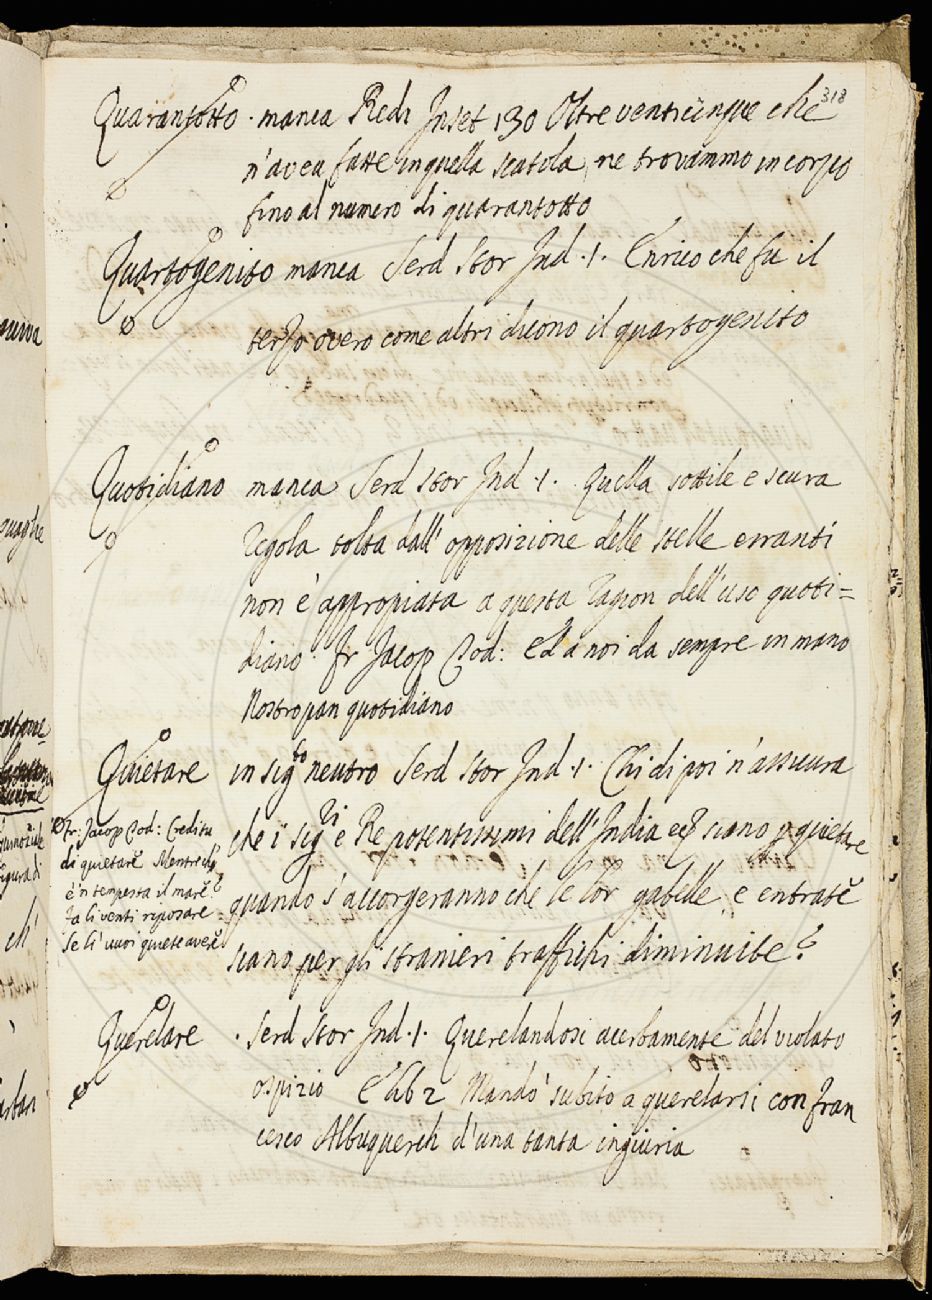 318
Quarantotto · manca Redi Inset 130 Oltre venticinque che
n'avea fatte in quella scatola, ne trovammo in corpo
fino al numero di quarantotto
Quartogenito manca Serd Stor Ind · 1 · Enrico che fu il
terzo overo come altri dicono il quartogenito
Quotidiano manca Serd Stor Ind · 1 · Quella sottile e scura
regola tolta dall' opposizione delle stelle erranti
non è appropiata a questa ragion dell'uso quoti=
diano · fr Jacop Tod: Ed a noi da sempre in mano
Nostro pan quotidiano
Quietare in sig.to neutro Serd Stor Ind · 1 · Chi di poi n'assicura
che i Sig.ri e Re potentissimi dell'India siano p quietare
quando s'accorgeranno che le lor gabelle, e entrate
siano per gli stranieri traffichi diminuite?
Fr: Jacop Tod: Credi tu
di quietare Mentre che
è 'n tempesta il mare?
Fa li venti riposare
Se li vuoi quiete avere
Querelare · Serd Stor Ind · 1 · Querelandosi acerbamente del violato
ospizio E lib 2 Mandò subito a querelarsi con Fran
cesco Albuquerch d'una tanta ingiuria